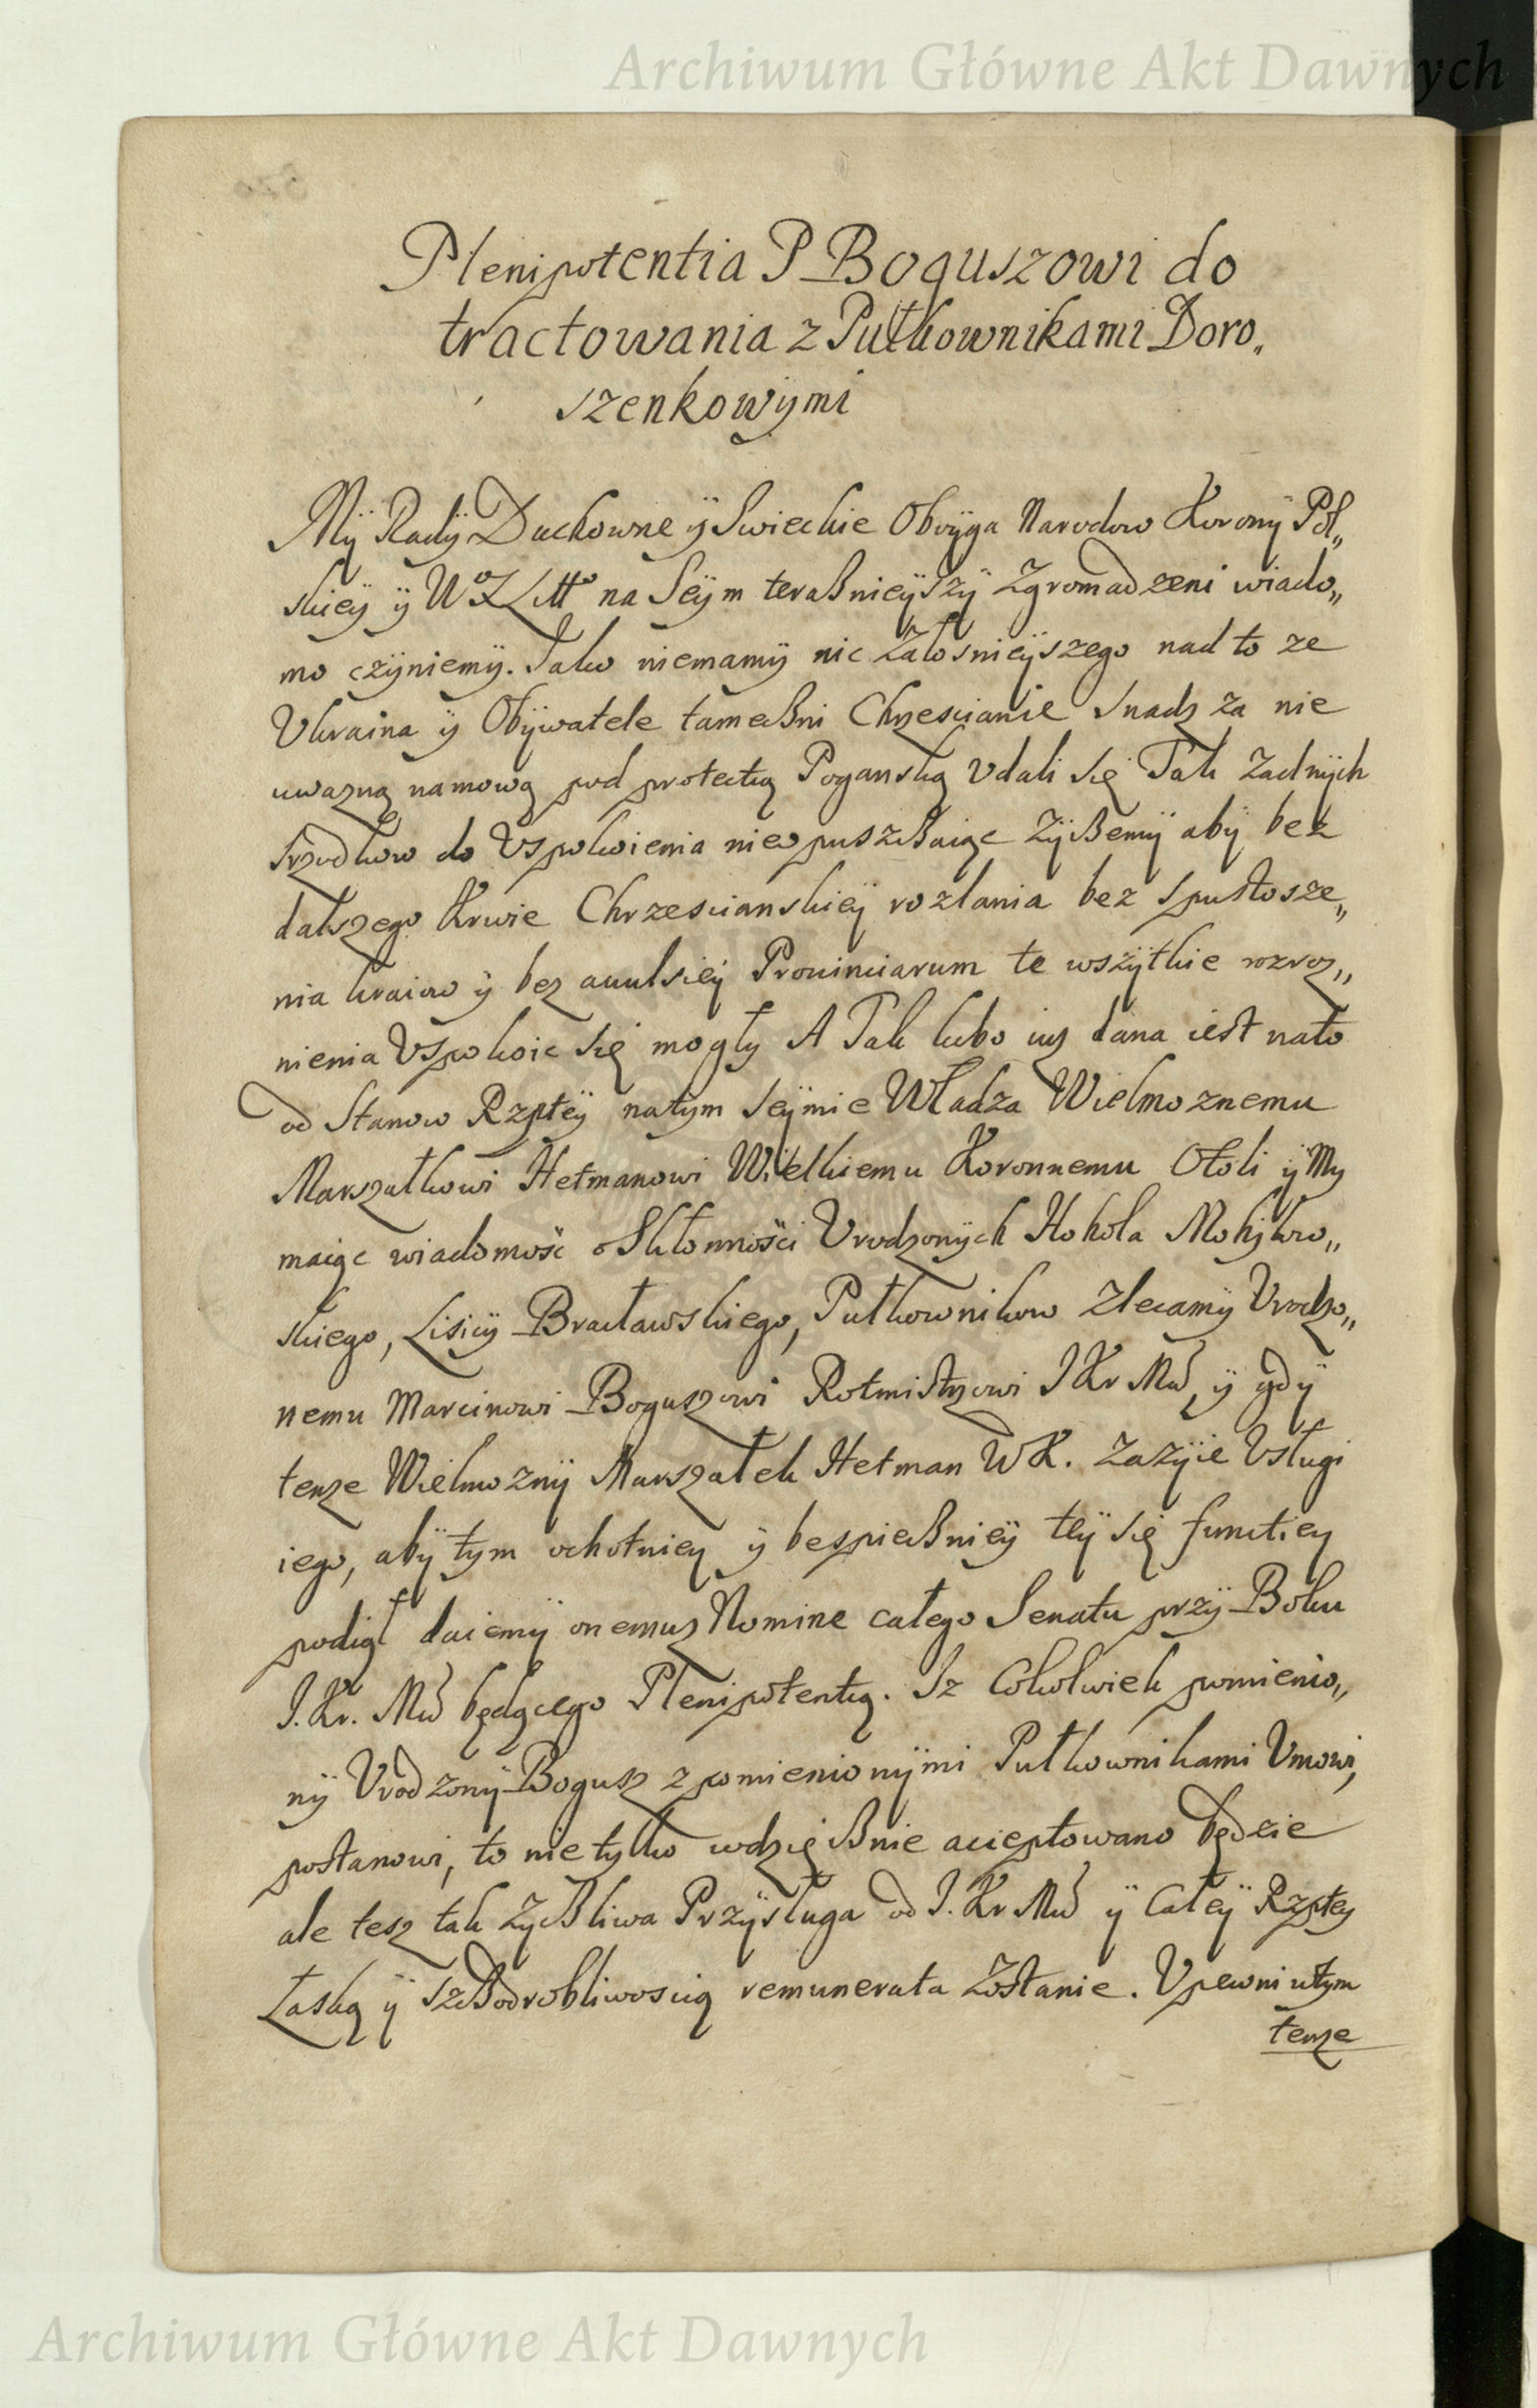 Archiwum Główne Akt Dawnych
Plenipotentia P Boguszowi do
tractowania z Pułkownikami Doro„
szenkowÿmi
Mÿ Radÿ Duchowne ÿ Swieckie Oboÿga Narodow Koronÿ Pol„
skieÿ ÿ WoXLitto na Seÿm teraßnieÿszÿ Zgromadzeni wiado„
mo czÿniemÿ. Jako niemamÿ nic Załosnieÿszego nad to ze
Vkraina ÿ Obÿwatele tameßni Chrzescianie snadz za nie
uwazną namową pod protectią Poganską Vdali się Tak Zadnÿch
srzodkow do Vspokoienia nieopuszßaiąc Zÿßemÿ abÿ bez
dalszego Krwie Chrzescianskieÿ rozlania bez spustosze„
nia kraiow ÿ bez auulsieÿ Prouinciarum te wszÿtkie rozroz„
nienia Vspokoic się mogłÿ A Tak lubo iuz dana iest nato
od Stanow Rzpteÿ natÿm seÿmie Władza Wielmoznemu
Marszałkowi Hetmanowi Wielkiemu Koronnemu Otoli ÿ Mÿ
maiąc wiadomość o Skłonności Vrodzonÿch Hohola Mohÿlow„
skiego, Lisicÿ Bracławskiego, Pułkownikow Zlecamÿ Vrodzo„
nemu Marcinowi Boguszowi Rotmistrzowi J Kr Mći, ÿ gdÿ
tenze Wielmoznÿ Marszałek Hetman WK. Zazÿie Vsługi
iego, abÿ tÿm ochotnieÿ ÿ bespießnieÿ teÿ się functieÿ
podiął daiemÿ onemuz Nomine całego Senatu przÿ Boku
J. Kr. Mći będącego Plenipotentią. Iz Cokolwiek pomienio„
nÿ Vrodzonÿ Bogusz z pomienionÿmi Pułkownikami Vmowi,
postanowi, to nie tÿlko wdzięßnie acceptowano będzie
ale tesz tak Zÿßliwa Przÿsługa od J. Kr Mći ÿ Całeÿ Rzpteÿ
Łaską ÿ szßodrobliwoscią remunerata Zostanie. Vpewni wtÿm
tenze
Archiwum Główne Akt Dawnych